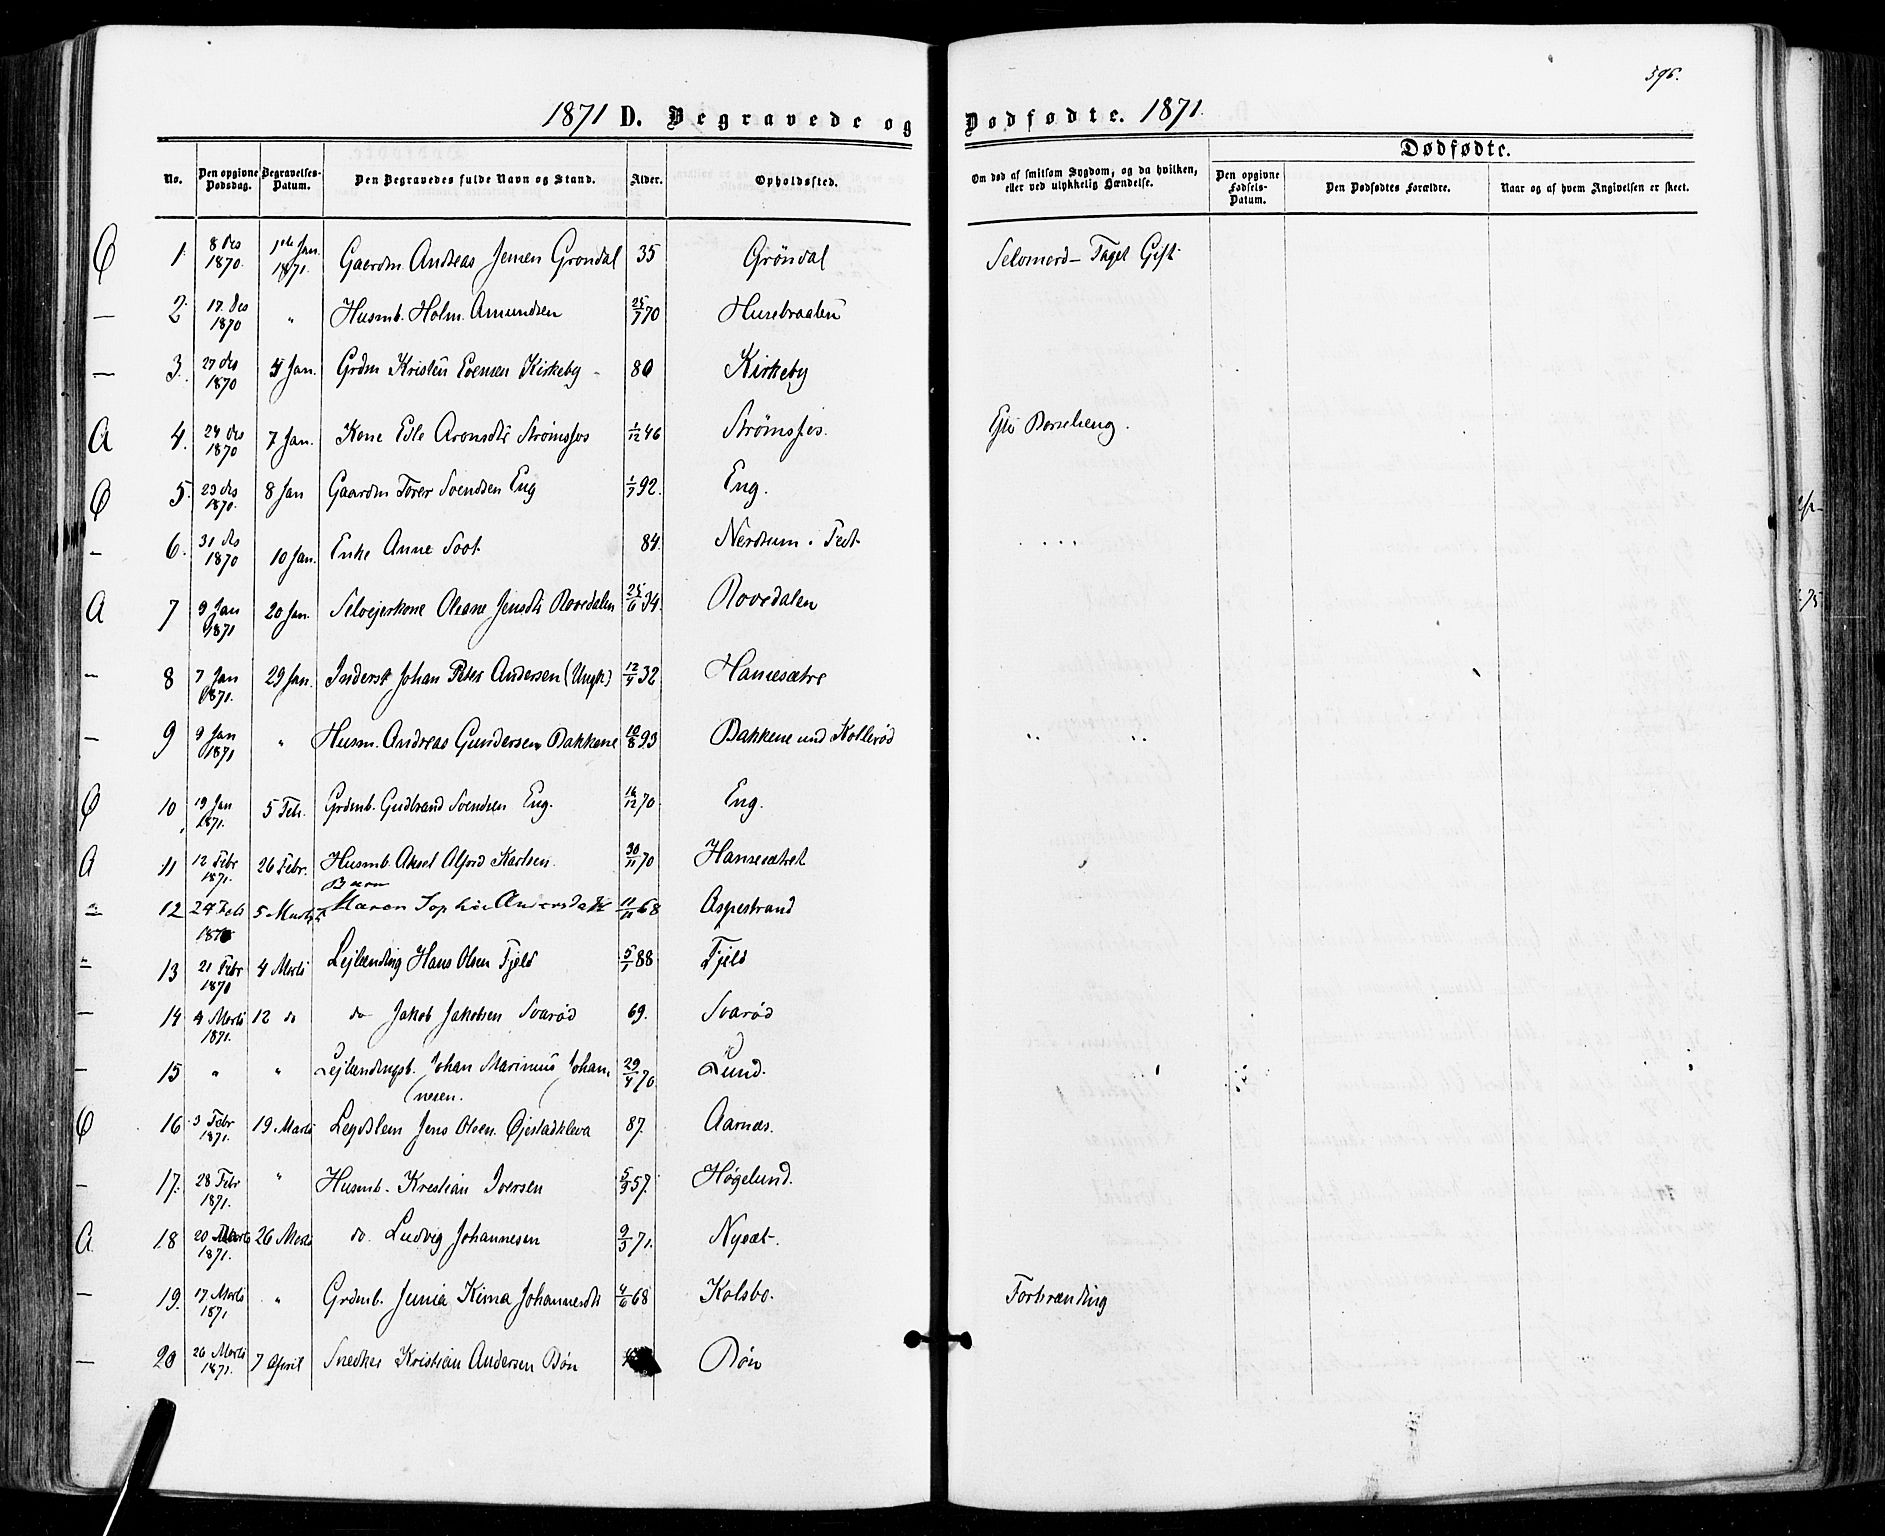 596.
1871 D. Begravede og Dødfødte. 1871.
Dødfødte.
No. Den opgivne Dødsdag. Begravelses-Datum. Den Begravedes fulde Navn og Stand. Alder. Opholdssted. Om død af smitsom Sygdom, og da hvilken, eller ved ulykkelig Hændelse. Den opgivne Fødsels-Datum. Den Dødfødtes Forældre. Naar og af hvem Angivelsen er skeet.
1. 8 Des 1870. 1ste Jan. 1871. Gaardm. Andreas Jensen Grøndal 35 Grøndal Selvmord – Taget Gift
2. 17. Des 1870 " Husmb. Holm. Amundsen 25/7 70 Husebraaten
3. 27 Des 1870 4 Jan. Grdm Kristen Evensen Kirkeby 80 Kirkeby
A 4. 24 Des 1870 7 Jan. Kone Edle Aronsdtr Strømsfos 1/12 46 Strømsfos. Eft. Barseleng.
5. 23 Des 1870. 8 Jan Gaardm Torer Svendsen Eng 1/7 92. Eng.
6. 31 Des 1870 10 Jan. Enke Anne Soot 84. Nerdsum i Fedt
A 7 9 Jan 1871 20 Jan. Selveierkone Oleane Jensdtr Rovedalen 25/6 34. Rovedalen
8 7 Jan 1871. 29 Jan. Inderst Johan Peter Andersen (Ungk.) 12/9 32 Hansesætre
9 9 Jan 1871 " Husm. Andreas Gundersen Bakkene 10/8 93 Bakkene und Kollerød
10 19 Jan 1871. 5 Feb. Grdmb. Gudbrand Svendsen Eng. 16/12 70 Eng.
A 11 12 Febr 1871. 26 Febr. Husmb. Aksel Alfred Karlsen. 30/11 70 Hansesætret
12 24 Feb 5 Marts Barn Maren Sophie Andersdatt 11/11 68 Aspestrand
13 21 Febr 1870 4 Marts Lejlænding Hans Olsen Fjeld 5/1 88 Fjeld
14 4 Marts 1871. 12 do do Jakob Jakobsen Svarød 69. Svarød
15 " " Lejlændingsb. Johan Marinius Johannesen. 29/4 70 Lund.
16 3 Febr 1871. 19 Marts Legdslem Jens Olsen Øiestadkleva 87. Aarnæs.
17. 28 Febr 1871. " Husmb. Kristian Iversen 5/9 57. Høgelund.
A 18 20 Marts 1871. 26 Marts do. Ludvig Johannesen 9/3 71. Nysæt.
19. 17 Marts 1871 " Grdmb. Junia Kima Johannesdtr 4/6 68 Kolsbo. Forbrænding
20 26 Marts 1871. 7 April Snedker Kristian Andersen Bøn Bøn